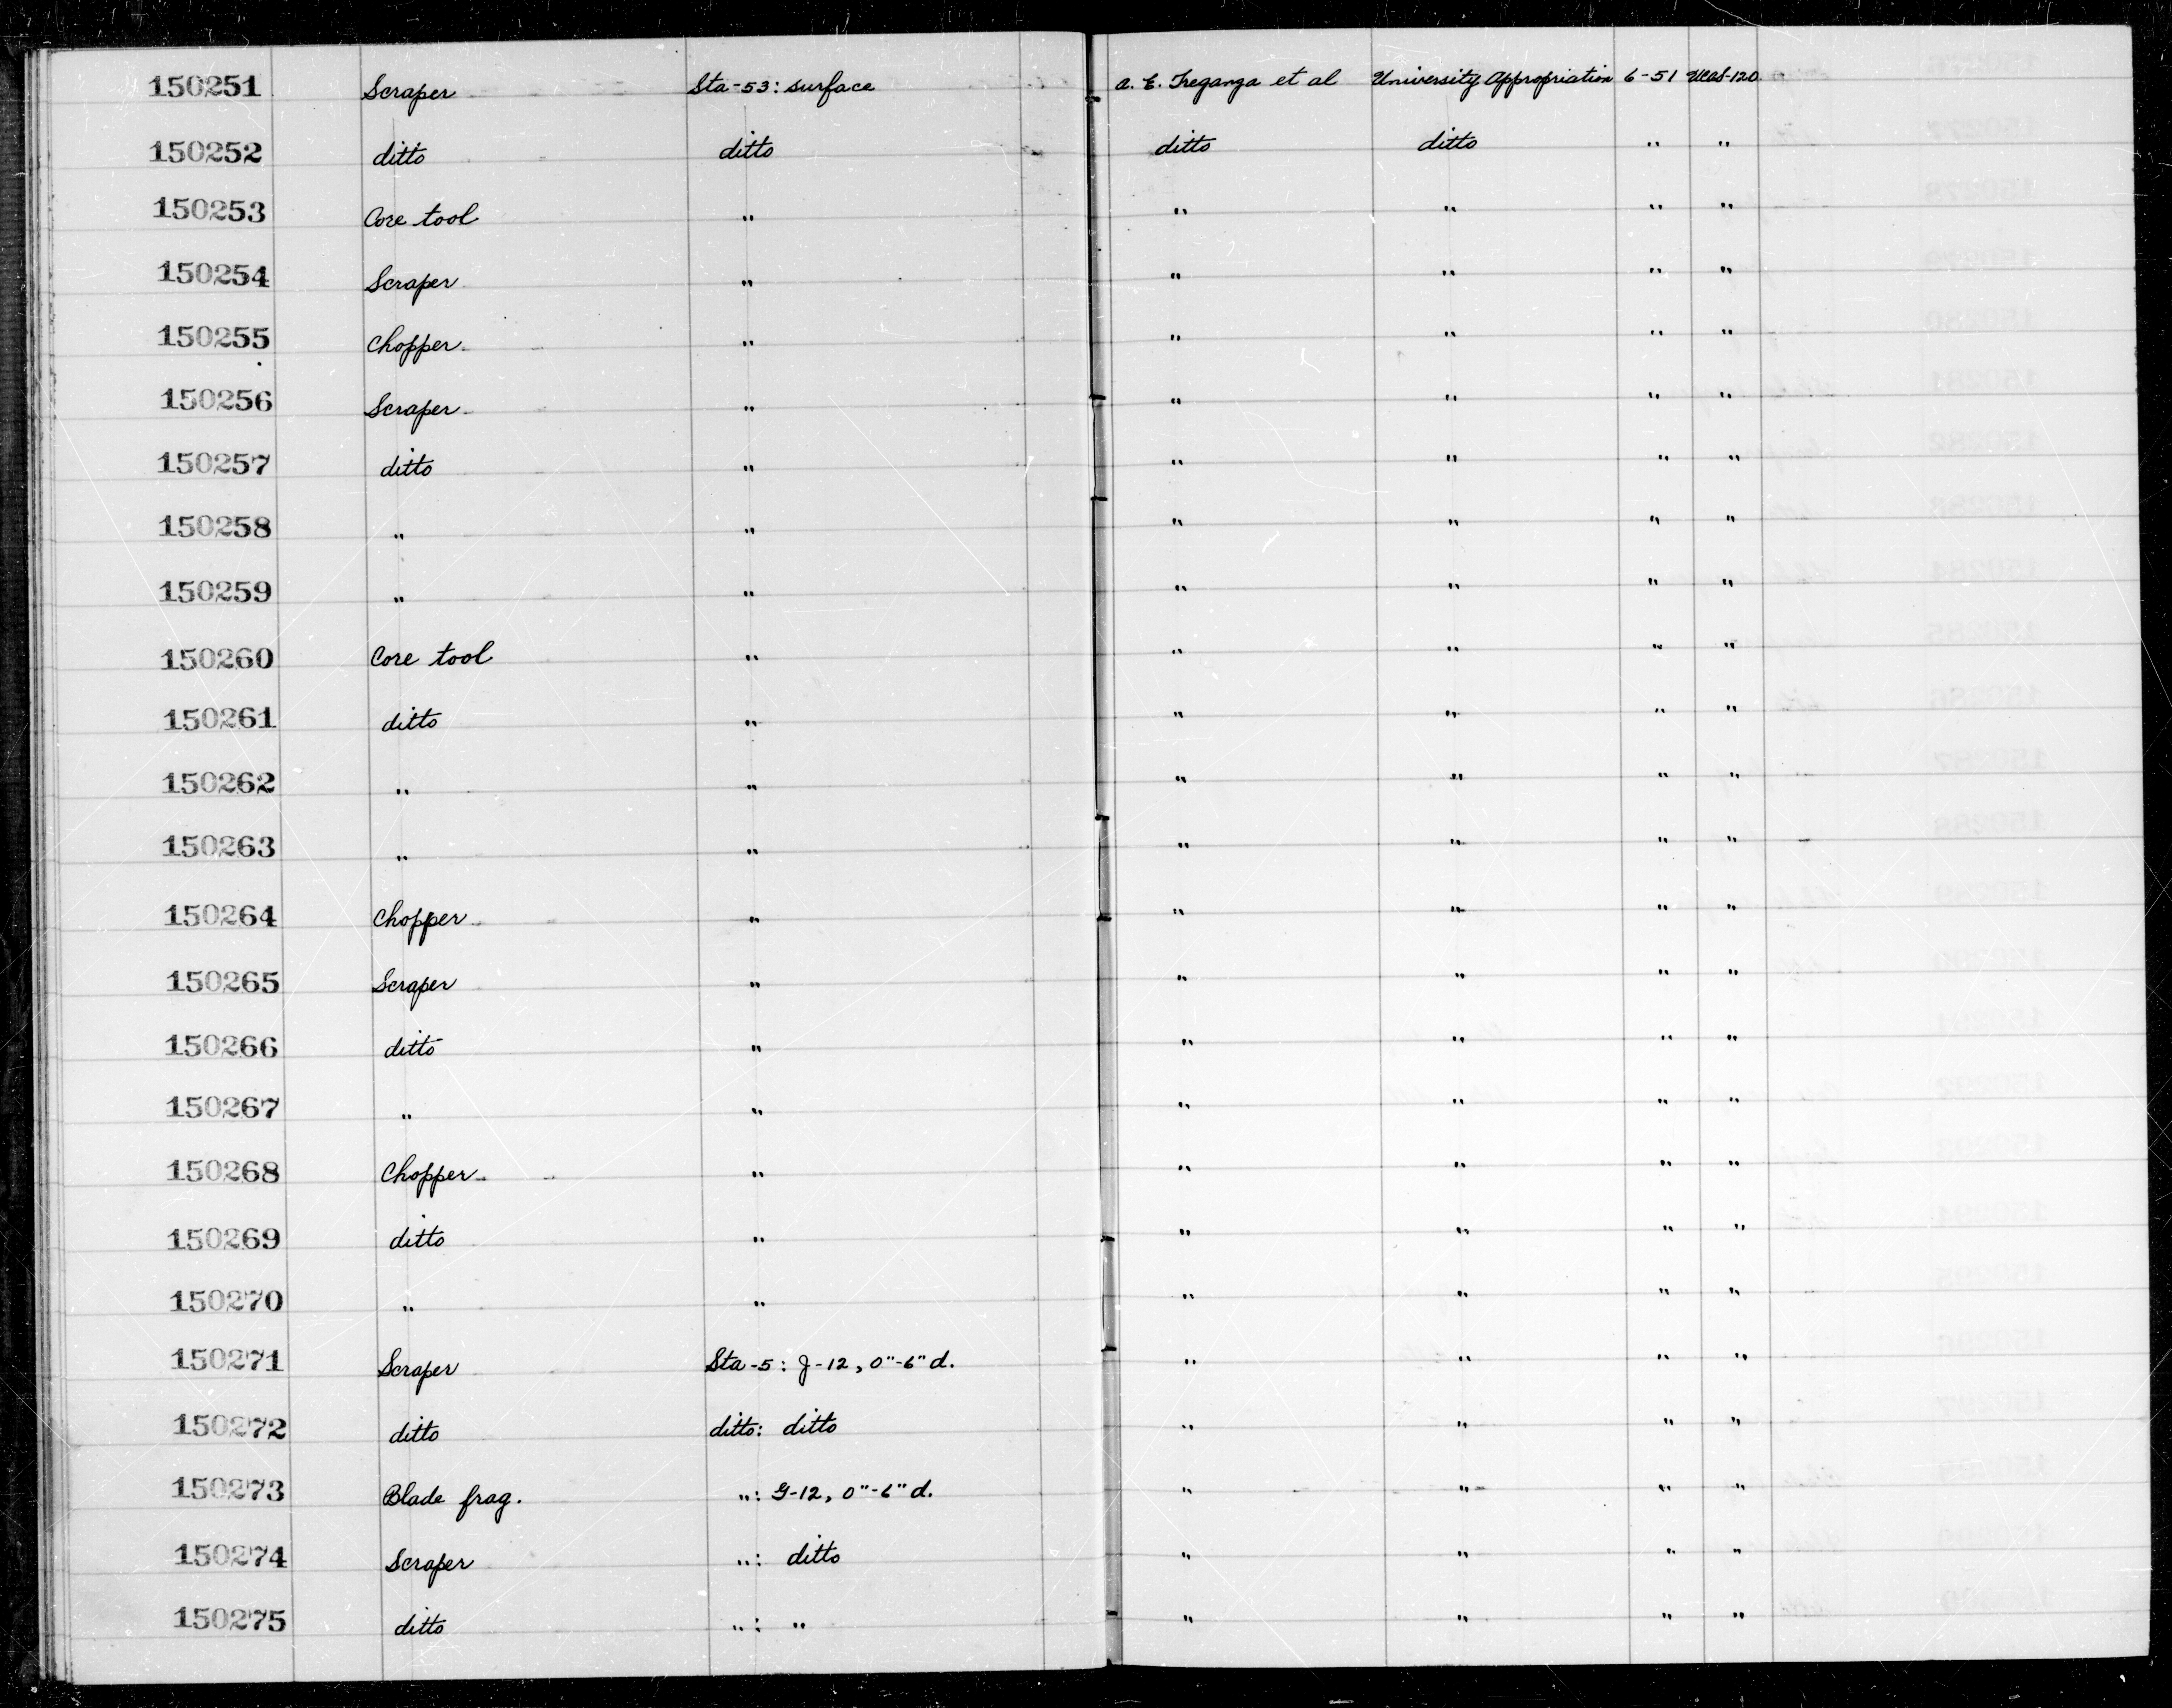 150251 Scraper Sta-53: surface A. E. Treganza et al University Appropriation 6-51 UCAS-120
150252 ditto ditto ditto ditto " "
150253 Core tool " " " " "
150254 Scraper " " " " "
150255 Chopper " " " " "
150256 Scraper " " " " "
150257 ditto " " " " "
150258 " " " " " "
150259 " " " " " "
150260 Core tool " " " " "
150261 ditto " " " " "
150262 " " " " " "
150263 " " " " " "
150264 Chopper " " " " "
150265 Scraper " " " " "
150266 ditto " " " " "
150267 " " " " " "
150268 Chopper " " " " "
150269 ditto " " " " "
150270 " " " " " "
150271 Scraper Sta-5: J-12, 0"-6" d. " " " "
150272 ditto ditto: ditto " " " "
150273 Blade frag. ": G-12, 0"-6" d. " " " "
150274 Scraper ": ditto " " " "
150275 ditto ": " " " " "